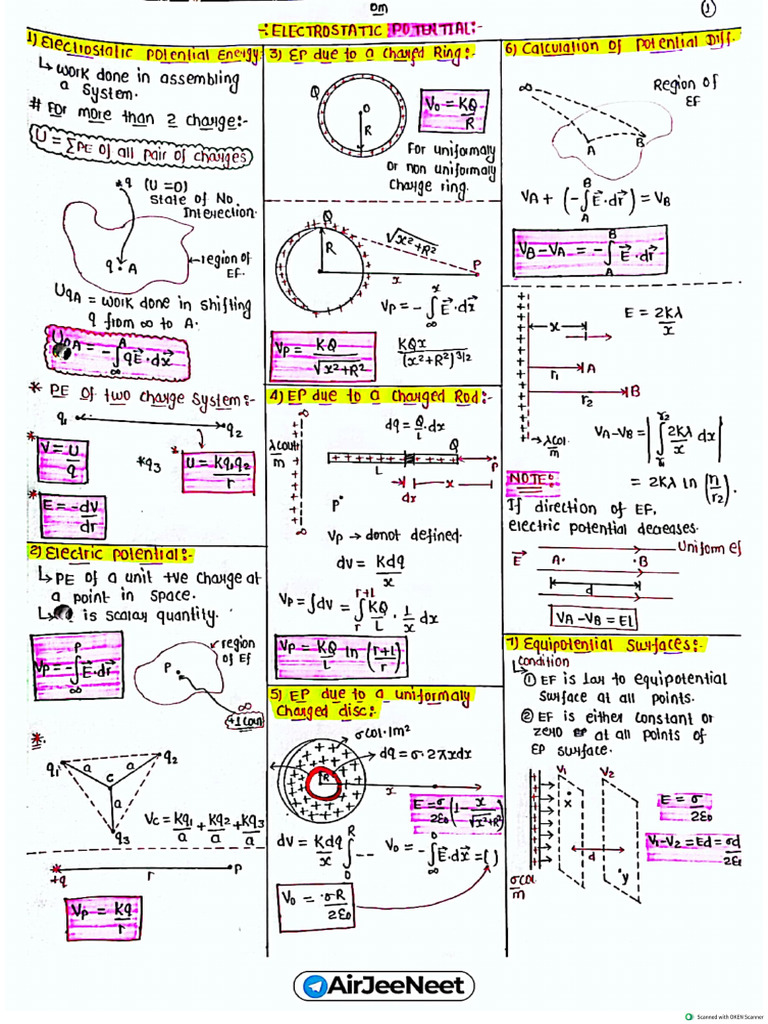 Om
1
-: ELECTROSTATIC POTENTIAL:-
1) Electrostatic Potential Energy:
↳ work done in assembling
a system.
# For more than 2 charge:-
U = ΣPE of all pair of charges
*q (U=0)
State of No
Interection.
q • A
region of
EF.
UqA = work done in shifting
q from ∞ to A.
= -∫ qE⃗·dx⃗
A
∞
* PE of two charge System:-
q1
q2
* V = U/q
*q3
* U = Kq1q2/r
* E = -dV/dr
2) Electric Potential:-
↳ PE of a unit +ve charge at
a point in space.
is scalar quantity.
Vp = -∫ E⃗·dr⃗
P
∞
region
of Ef
P
∞
+1 Coul
*.
q1
q2
q3
a
a
a
C
Vc = Kq1/a + Kq2/a + Kq3/a
* +q
r
P
Vp = Kq/r
3) EP due to a Charged Ring:-
Q
O
R
V0 = KQ/R
For uniformaly
or non uniformaly
Charge ring.
Q
R
√x²+R²
P
x
Vp = -∫ E⃗·dx⃗
x
∞
Vp = KQ/√x²+R²
KQx/(x²+R²)^3/2
4) EP due to a Charged Rod:-
∞
λ coul/m
∞
P
dq = Q/L · dx
Q
L
P
dx
x
Vp → donot defined.
dv = Kdq/x
Vp = ∫dv = ∫ KQ/L · 1/x dx
r+l
r
Vp = KQ/L ln (r+L/r)
5) EP due to a uniformaly
Charged disc:-
σ col·1m²
dq = σ·2πxdx
R
x
E = σ/2ε0 (1 - x/√x²+R²)
dv = Kdq/x ∫ ---
R
0
V0 = -∫ E⃗·dx⃗ = ( )
0
∞
V0 = σR/2ε0
6) Calculation of Potential Diff.
∞
Region of
EF
A
B
VA + (-∫ E⃗·dr⃗) = VB
B
A
VB-VA = -∫ E⃗·dr⃗
B
A
x
r1
A
r2
B
λcol/m
E = 2Kλ/x
VA-VB = |∫ 2Kλ/x dx|
r2
r1
= 2Kλ ln (r1/r2).
NOTE:
If direction of EF,
electric potential decreases.
E⃗
A
B
Uniform ef
d
VA-VB = El
7) Equipotential Surfaces:-
↳ Condition
① EF is lar to equipotential
surface at all points.
② EF is either constant or
zero at all points of
EP surface.
V1
V2
x
d
y
σcol/m
E = σ/2ε0
V1-V2 = Ed = σd/2ε0
AirJeeNeet
Scanned with OKEN Scanner